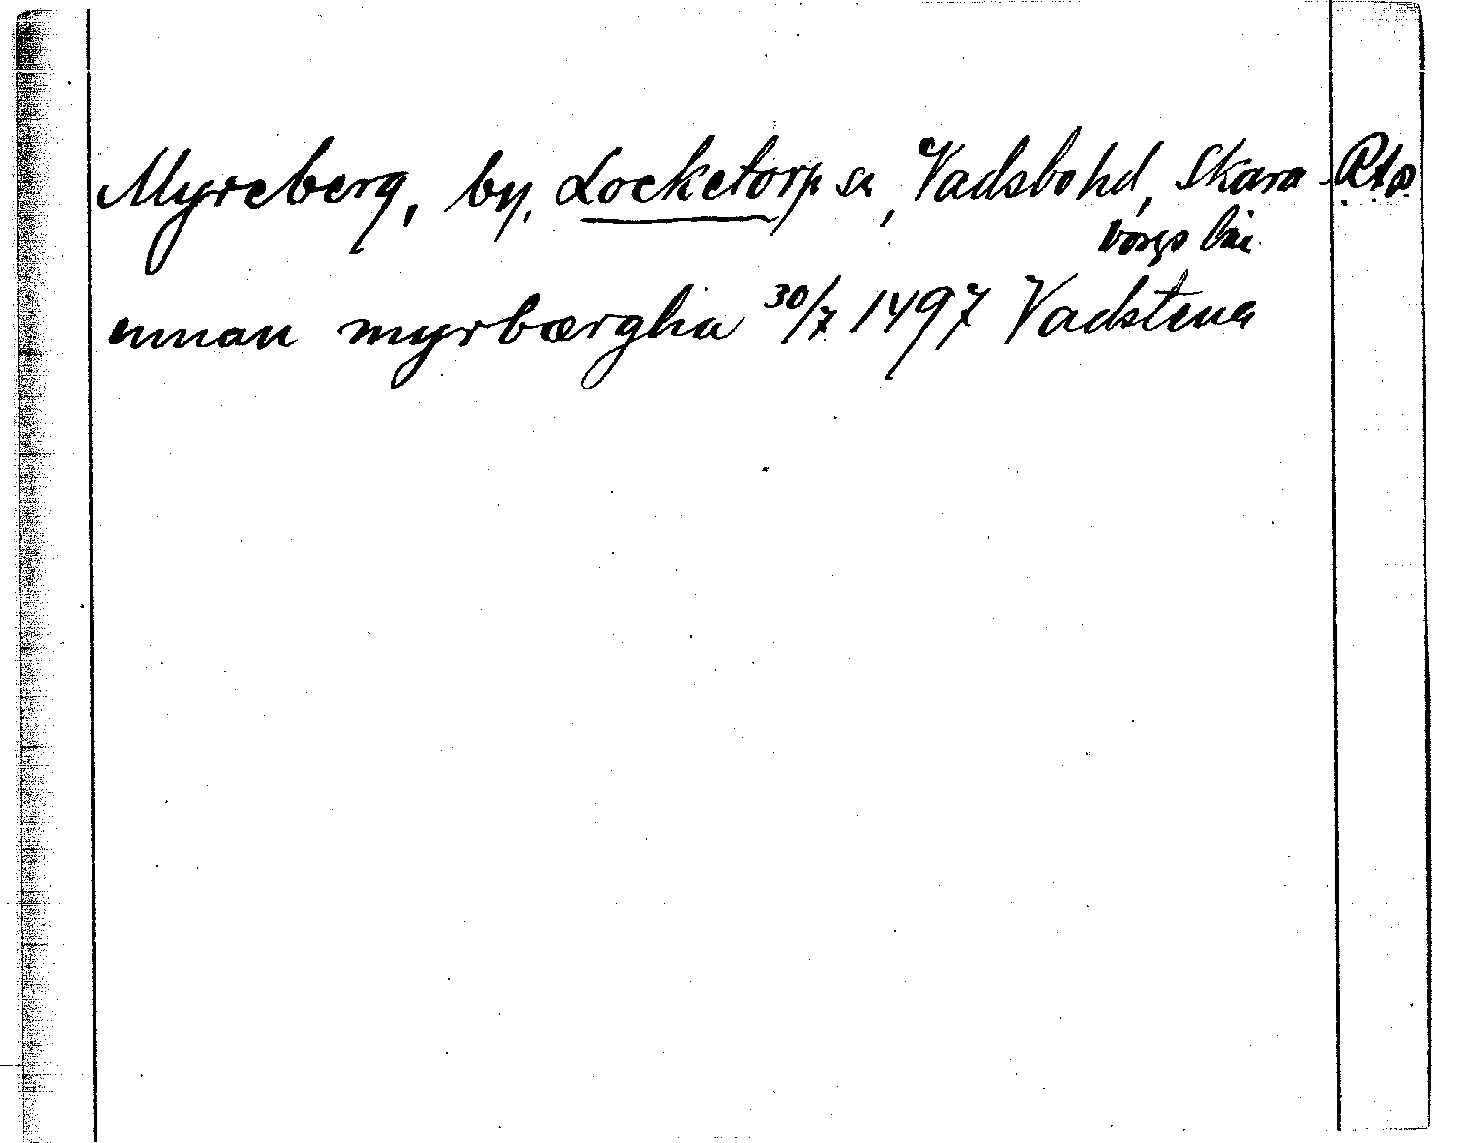 Myreberg, by, Locketorp sn, Vadsbo hd, Skara- Rtp.
borgs län
unnan myrbærgha 30/7 1497 Vadstena